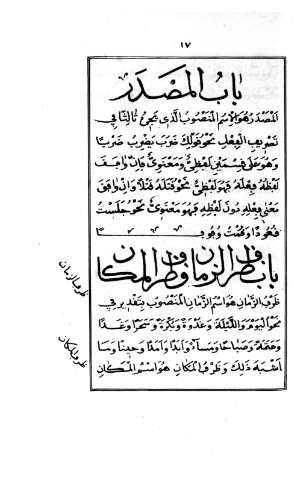 ١٧
باب المصدر
المصدر هو الاسم المنصوب الذي يجيء ثالثا في
تصريف الفعل نحو قولك ضرب يضرب ضربا
وهو على قسمين لفظي ومعنوي فان وافق
لفظه فعله فهو لفظي نحو قتلته قتلا وان وافق
معنى فعله دون لفظه فهو معنوي نحو جلست
قعودا وقمت وقوفا
باب ظرف الزمان وظرف المكان
ظرف الزمان هو اسم الزمان المنصوب بتقدير في
نحو اليوم والليلة وغدوة وبكرة وسحرا وغدا
وعتمة وصباحا ومساء وابدا وامدا وحينا وما
اشبه ذلك وظرف المكان هو اسم المكان
ظرف الزمان
ظرف المكان